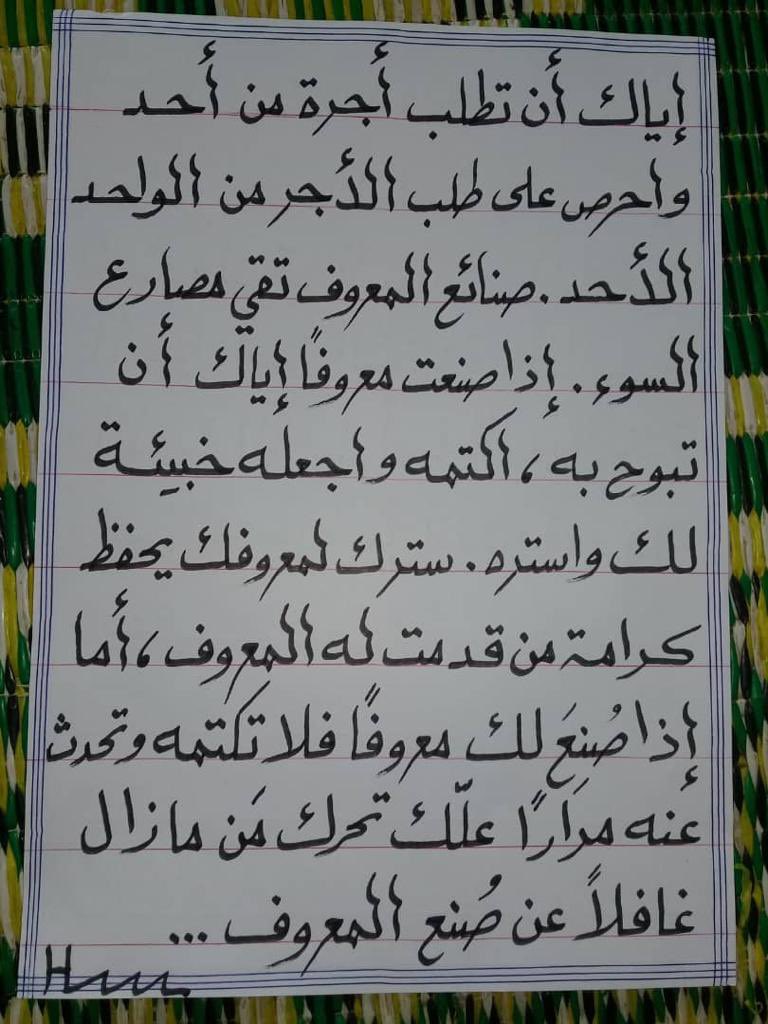 إياك أن تطلب أجرة من أحد
واحرص على طلب الأجر من الواحد
الأحد. صنائع المعروف تقي مصارع
السوء. إذا صنعت معروفًا إياك أن
تبوح به، اكتمه واجعله خبيئة
لك واستره. سترك لمعروفك يحفظ
كرامة من قدمت له المعروف، أما
إذا صُنِعَ لك معروفًا فلا تكتمه وتحدث
عنه مرَارًا علّك تحرك مَن مازال
غافلاً عن صُنع المعروف ...